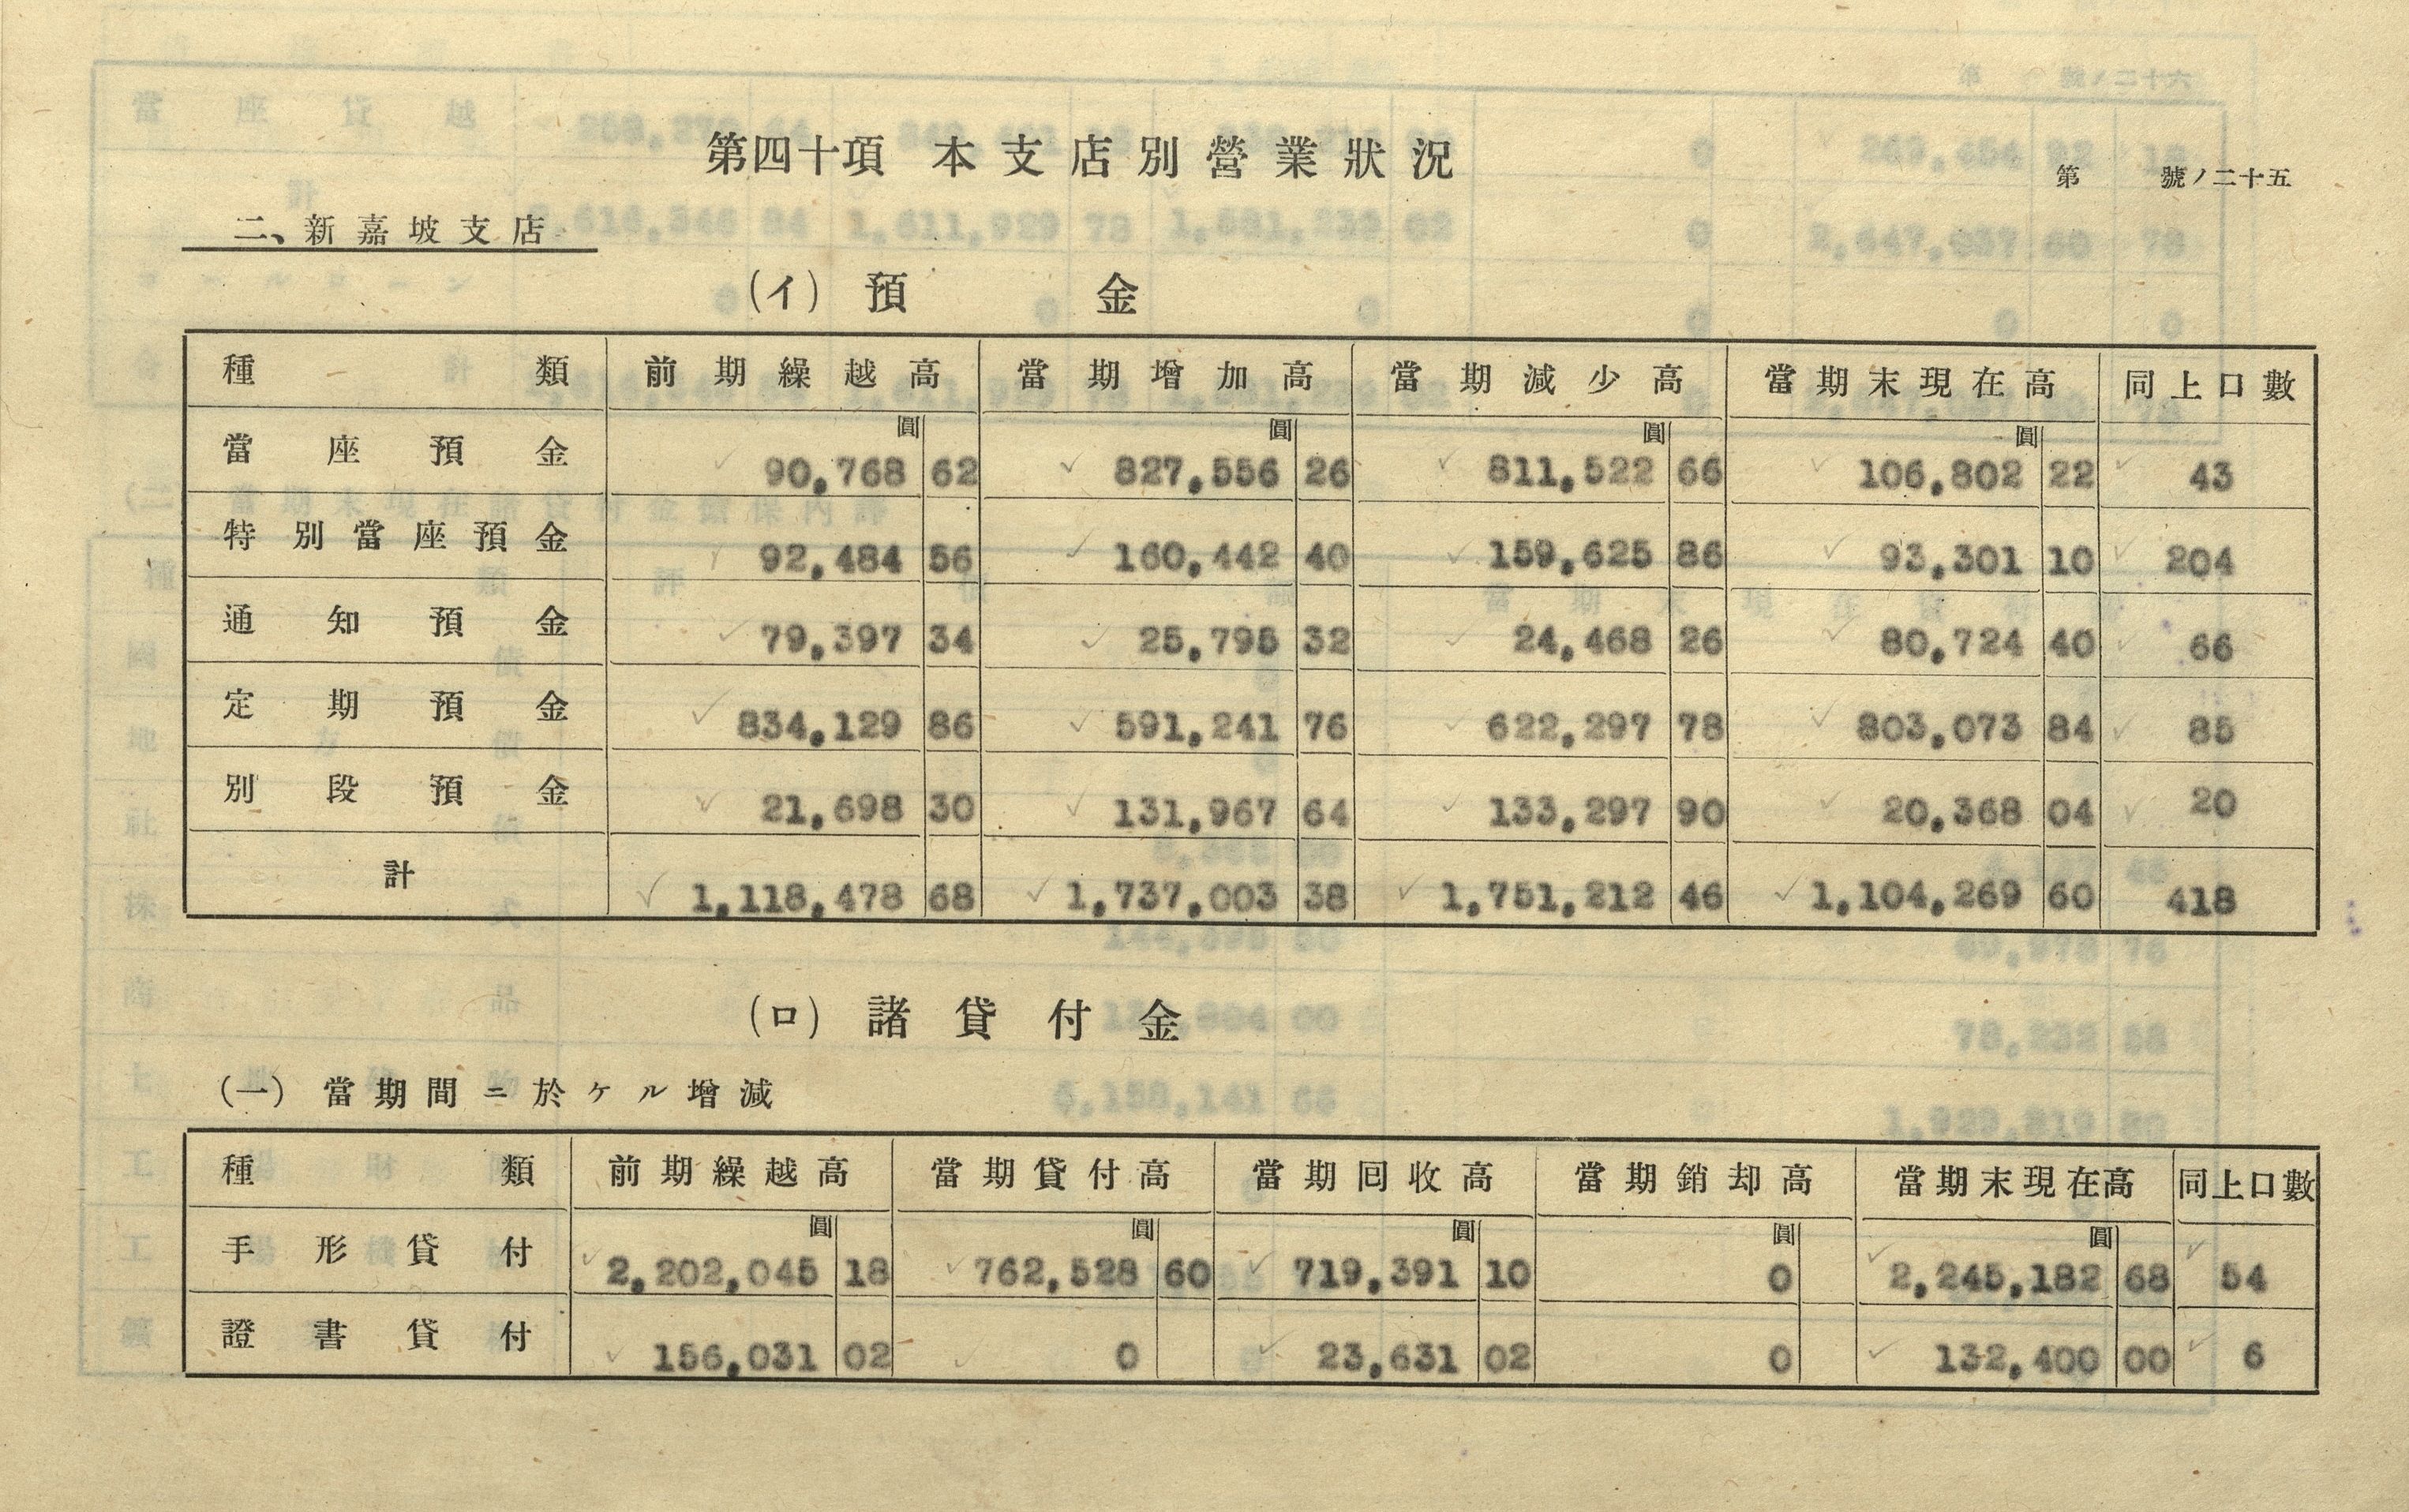 第四十項 本支店別營業狀況
第 號ノ二十五
二、新嘉坡支店
(イ) 預金
種類 前期繰越高 當期增加高 當期減少高 當期末現在高 同上口數
圓 圓 圓 圓
當座預金 90,768 62 827,556 26 811,522 66 106,802 22 43
特別當座預金 92,484 56 160,442 40 159,625 86 93,301 10 204
通知預金 79,397 34 25,795 32 24,468 26 80,724 40 66
定期預金 834,129 86 591,241 76 622,297 78 803,073 84 85
別段預金 21,698 30 131,967 64 133,297 90 20,368 04 20
計 1,118,478 68 1,737,003 38 1,751,212 46 1,104,269 60 418
(ロ) 諸貸付金
(一) 當期間ニ於ケル增減
種類 前期繰越高 當期貸付高 當期回收高 當期銷却高 當期末現在高 同上口數
圓 圓 圓 圓 圓
手形貸付 2,202,045 18 762,528 60 719,391 10 0 2,245,182 68 54
證書貸付 156,031 02 0 23,631 02 0 132,400 00 6